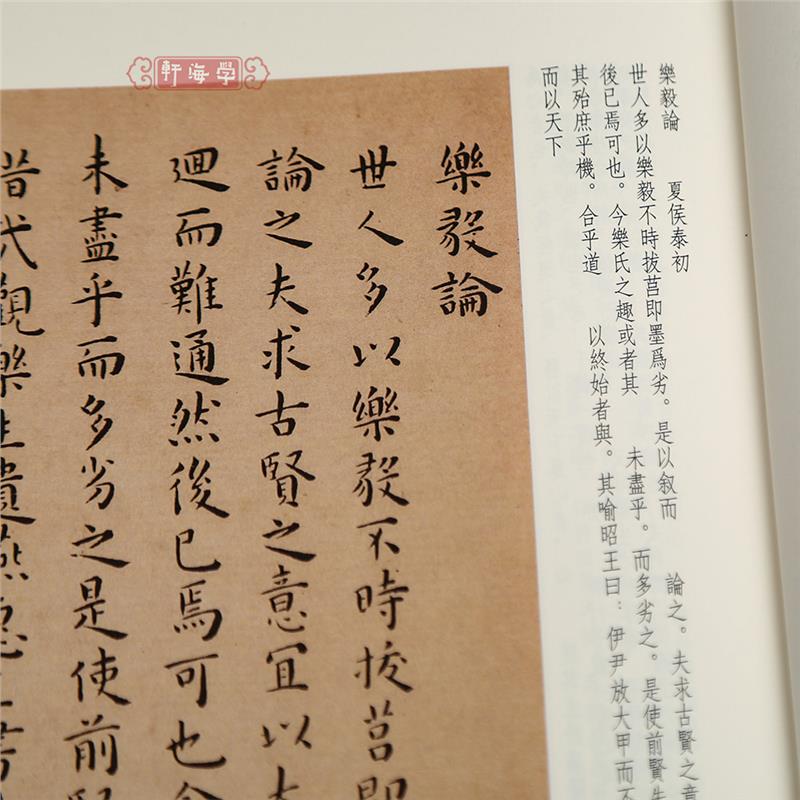 學海軒
樂毅論 夏侯泰初
世人多以樂毅不時拔莒即墨爲劣。是以叙而 論之。夫求古賢之意
後已焉可也。今樂氏之趣或者其 未盡乎。而多劣之。是使前賢失
其殆庶乎機。合乎道 以終始者與。其喻昭王曰：伊尹放大甲而不
而以天下
樂毅論
世人多以樂毅不時拔莒即
論之夫求古賢之意宜以大
迴而難通然後已焉可也今
未盡乎而多劣之是使前賢
觀樂生遺燕惠王